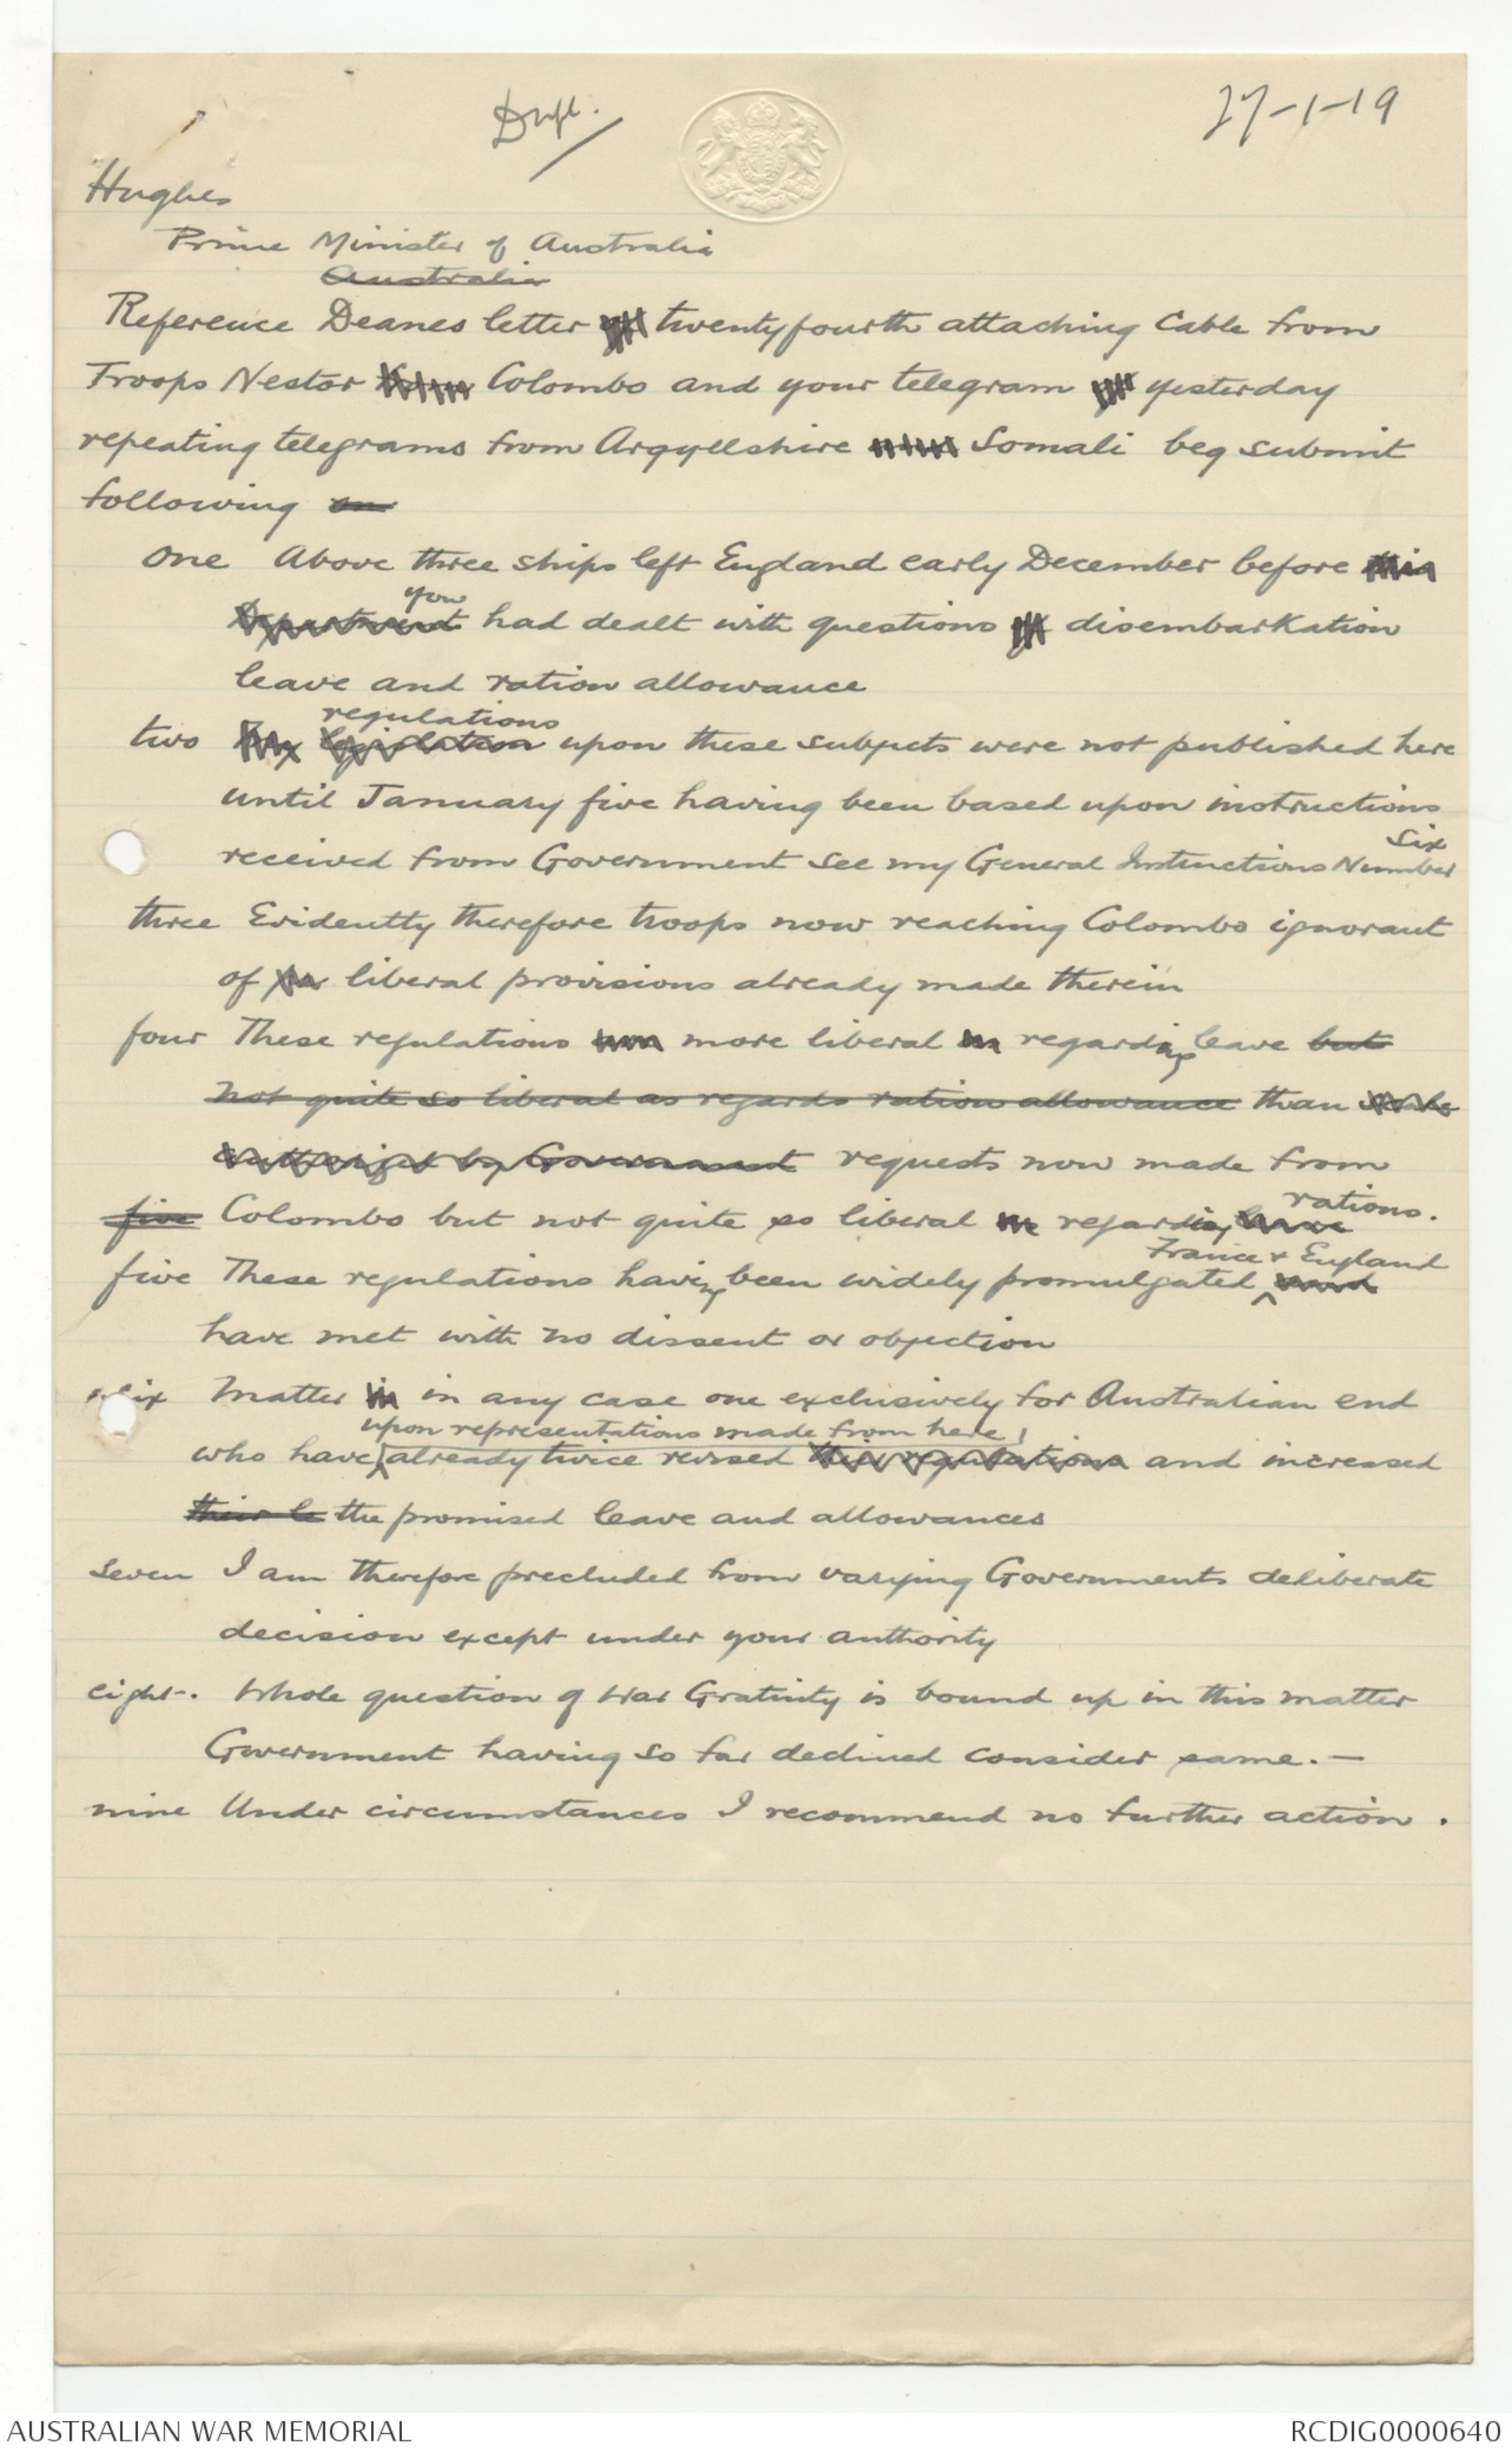 Dupl.
27-1-19
Hughes
Prime Minister of Australia
Australia
Reference Deanes letter twentyfourth attaching Cable from
Troops Nestor Colombo and your telegram yesterday
repeating telegrams from Argyllshire Somali beg submit
following
one Above three ships left England early December before this
you
Department had dealt with questions disembarkation
leave and ration allowance
regulations
two My legislation upon these subjects were not published here
until January five having been based upon instructions
six
received from Government see my General Instructions Number
three Evidently therefore troops now reaching Colombo ignorant
of liberal provisions already made therein
four These regulations more liberal regarding leave but
not quite so liberal as regards ration allowance than
authorized by Government requests now made from
rations.
five Colombo but not quite so liberal regarding leave
France & England
five These regulations having been widely promulgated
have met with no dissent or objection
six Matter is in any case one exclusively for Australian end
upon representations made from here
who have already twice revised their regulations and increased
their le the promised leave and allowances
seven I am therefore precluded from varying Governments deliberate
decision except under your authority
eight. Whole question of War Gratuity is bound up in this matter
Government having so far declined consider same. —
nine Under circumstances I recommend no further action.
AUSTRALIAN WAR MEMORIAL
RCDIG0000640